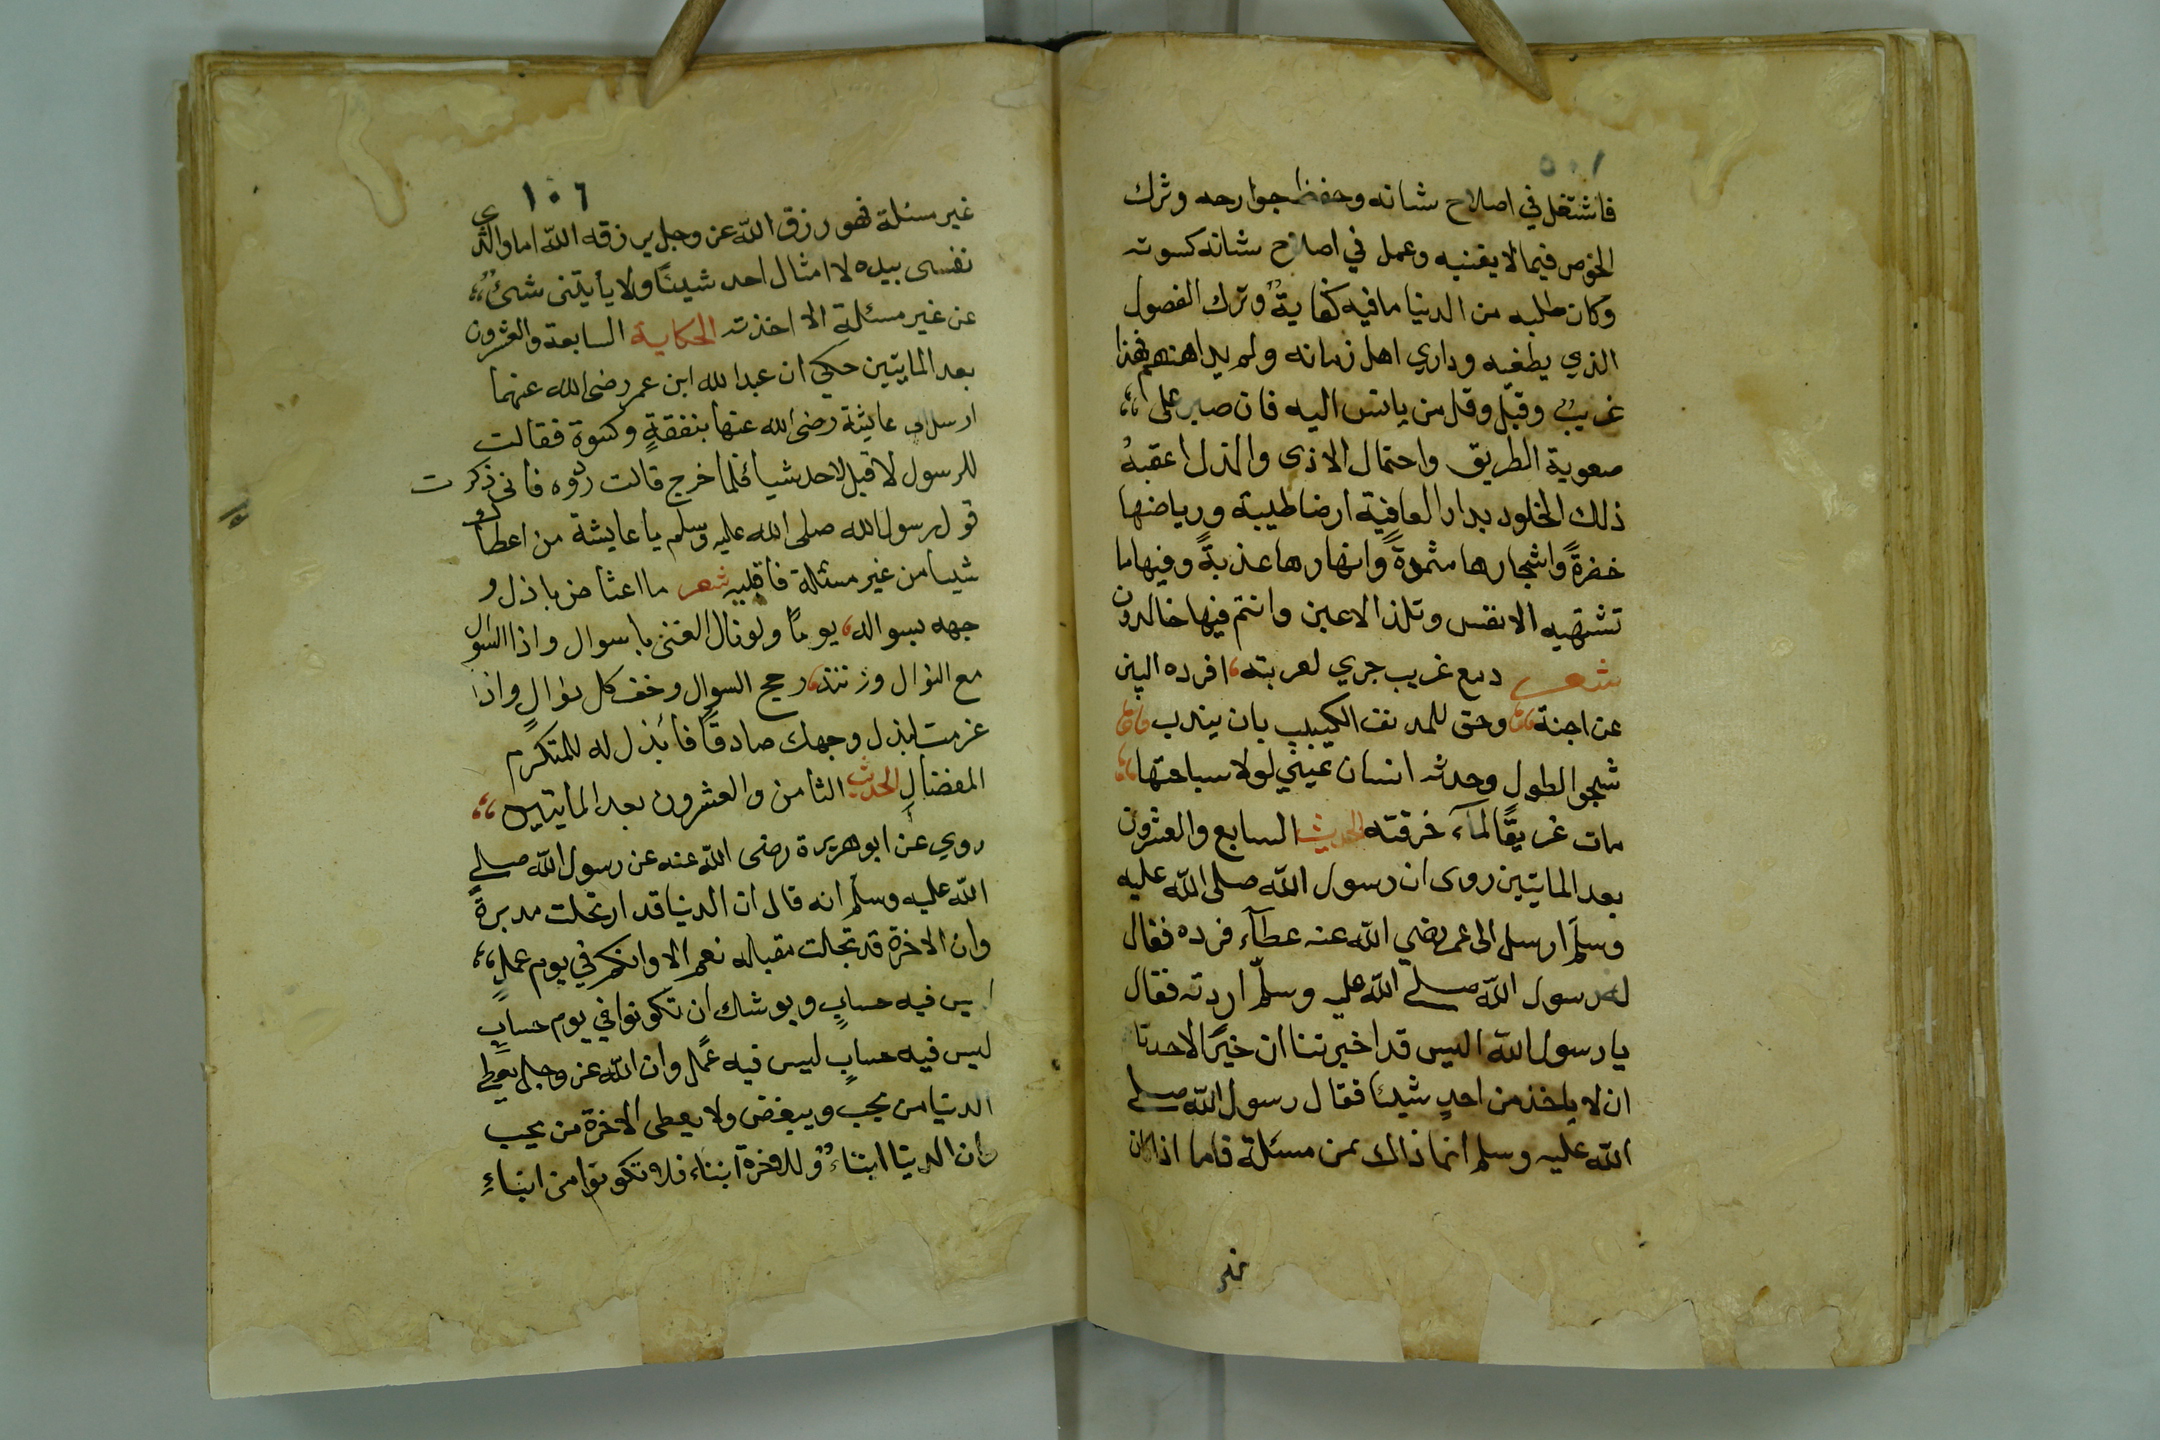 ١٠٥
فاشتغل في اصلاح شانه وحفظ جوارحه وترك
الخوض فيما لا يغنيه وعمل في اصلاح شانه كسوته
وكان طلبه من الدنيا ما فيه كفايةٌ وترك الفضول
الذي يطغيه وداري اهل زمانه ولم يداهنهم فهذا
غريبٌ وقبل وقل من يانس اليه فان صبر على
صعوبة الطريق واحتمال الاذى والذل اعقبهُ
ذلك الخلود بدار العافية ارضا طيبة ورياضها
خضرةً واشجارها مثمرةً وانهارها عذبةً وفيها ما
تشتهيه الانفس وتلذ الاعين وانتم فيها خالدون
شعر دمع غريب جري لغربته افرده البين
عن احبة وحق للمدنف الكييب بان يندب
شجو الطول وحدثه انسان عيني لولا سباحتها
مات غريقًا لمآء غرقته الحديث السابع والعشرون
بعد المايتين روى ان رسول الله صلى الله عليه
وسلم ارسل الى عمر رضي الله عنه عطآء فرده فقال
له رسول الله صلى الله عليه وسلم ارددته فقال
يا رسول الله اليس قد اخبرتنا ان خيرًا لاحدنا
ان لا ياخذ من احدٍ شيئا فقال رسول الله صلى
الله عليه وسلم انما ذاك بمن مسئلة فاما اذا كان
غير
١٠٦
غير مسئلة فهو رزق الله عز وجل يرزقه الله اما والذي
نفسى بيده لا امثال احد شيئًا ولا يأيتنى شئٌ
عن غير مسئلة الا اخذته الحكاية السابعة والعشرون
بعد المايتين حكي ان عبد الله ابن عمر رضى الله عنهما
ارسل الى عايشة رضى الله عنها بنفقةٍ وكسوة فقالت
للرسول لا قبل لاحد شيا فلما خرج قالت ردوه فانى ذكرت
قول رسول الله صلى الله عليه وسلم يا عايشة من اعطاك
شيا من غير مسئلة فاقبليه شعر ما اعتاض باذل و
جهه بسواله يومًا ولو نال الغنى باسوال واذا السوال
مع النوال وزنته رجح السوال وخف كل نوالٍ واذا
عزمت لبذل وجهك صادقًا فأبذل له للمتكرم
المفضالِ الحديث الثامن والعشرون بعد المايتين
روي عن ابو هريرة رضى الله عنه عن رسول الله صلى
الله عليه وسلم انه قال ان الدنيا قد ارتحلت مدبرةً
وان الاخرة قد تجلت مقباله نعم الا وانكم في يوم عملٍ
ليس فيه حسابٍ ويوشك ان تكونوا في يوم حسابٍ
ليس فيه حسابٍ ليس فيه عمل وان الله عز وجل يعطي
الدنيا من يحب ويبغض ولا يعطى الاخرة من يحب
وان الدنيا ابناءٌ وللاخرة ابناء فلا تكونوا من ابناءِ